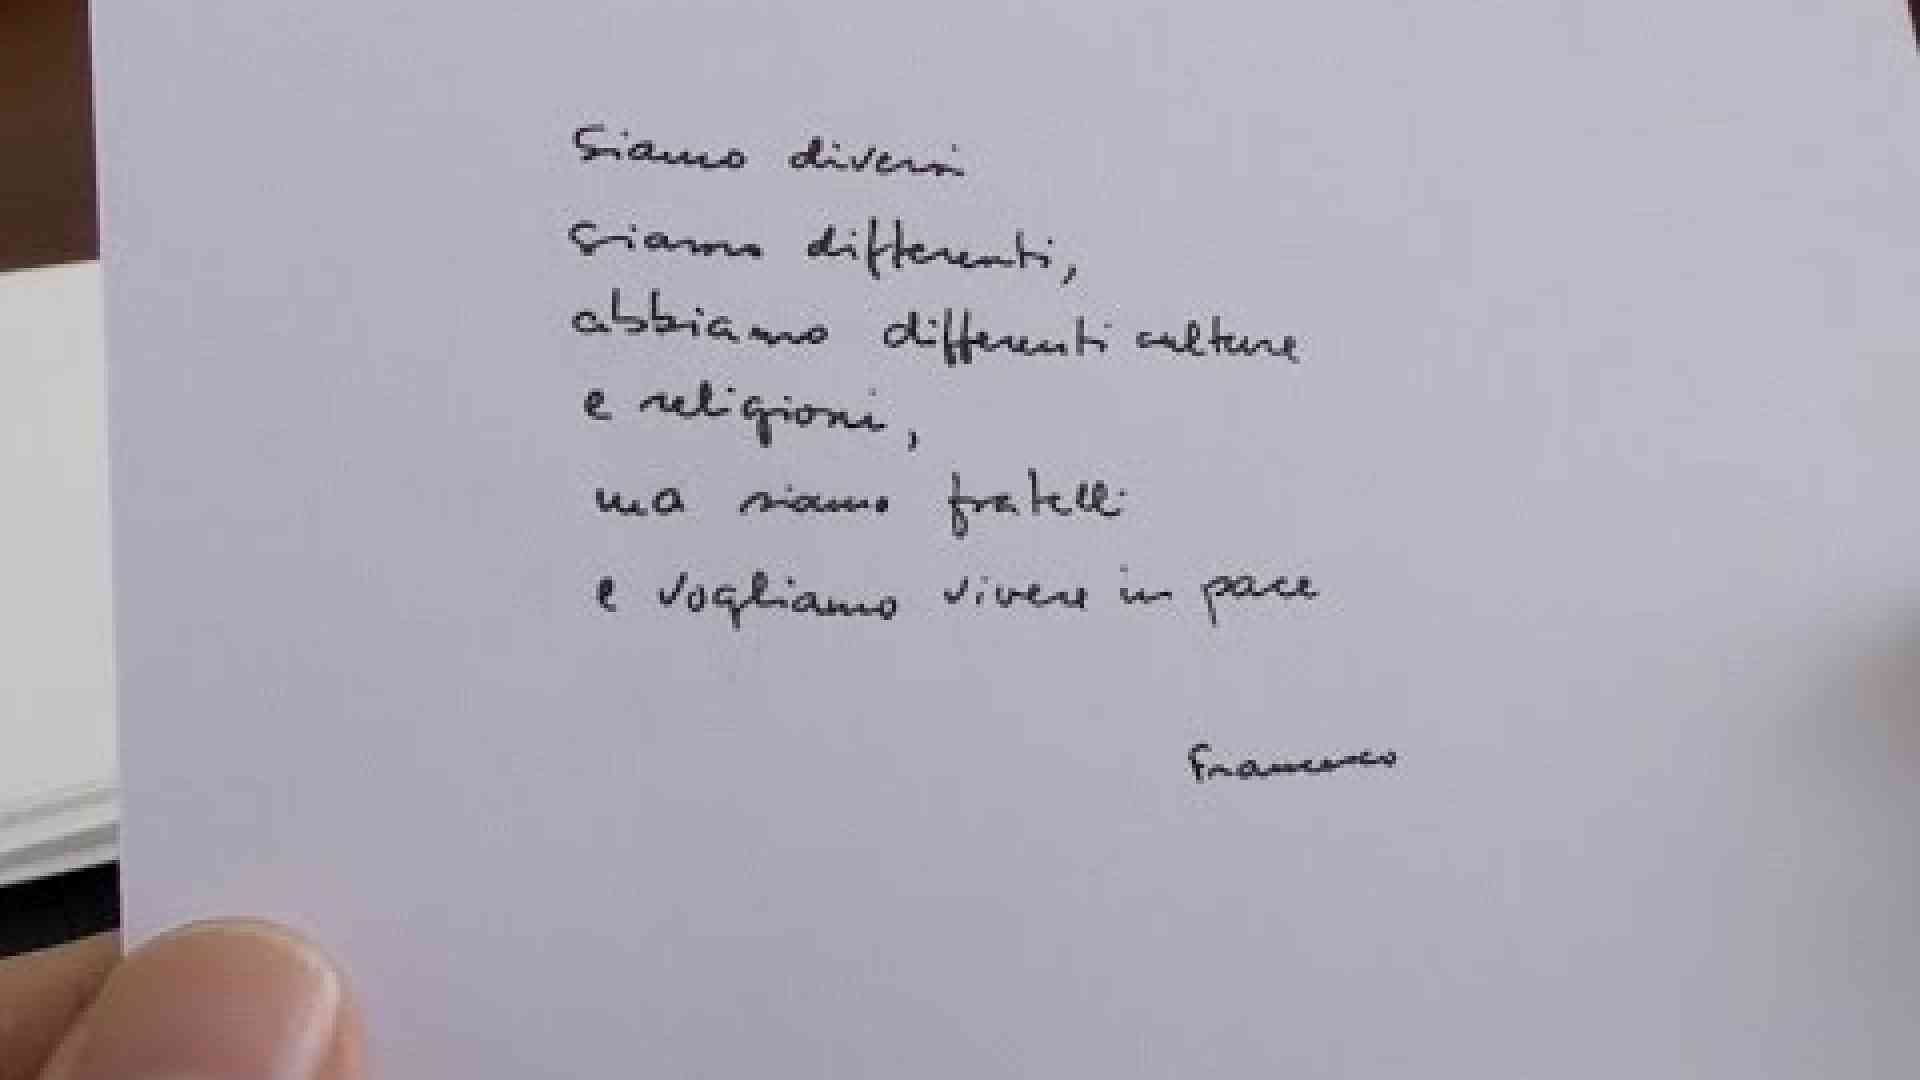 Siamo diversi
siamo differenti,
abbiamo differenti culture
e religioni,
ma siamo fratelli
e vogliamo vivere in pace
Francesco